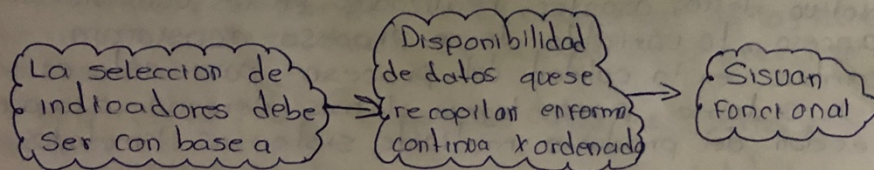 La seleccion de
indicadores debe
ser con base a
Disponibilidad
de datos que se
recopilan en forma
continua y ordenada
Sisvan
Foncional